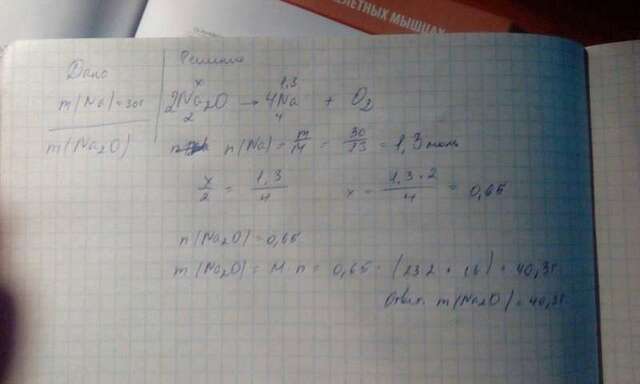 ЛЕТНЫХ МЫШЦАХ
Дано
Решение
m(Na)=30г
m(Na₂O)
x 1,3
2Na₂O → 4Na + O₂
2 4
n(Na) = m/M = 30/23 = 1,3 моль
x/2 = 1,3/4 x = 1,3·2/4 = 0,65
n(Na₂O)=0,65
m(Na₂O) = M·n = 0,65·(23·2+16) = 40,3г
Ответ m(Na₂O)=40,3г